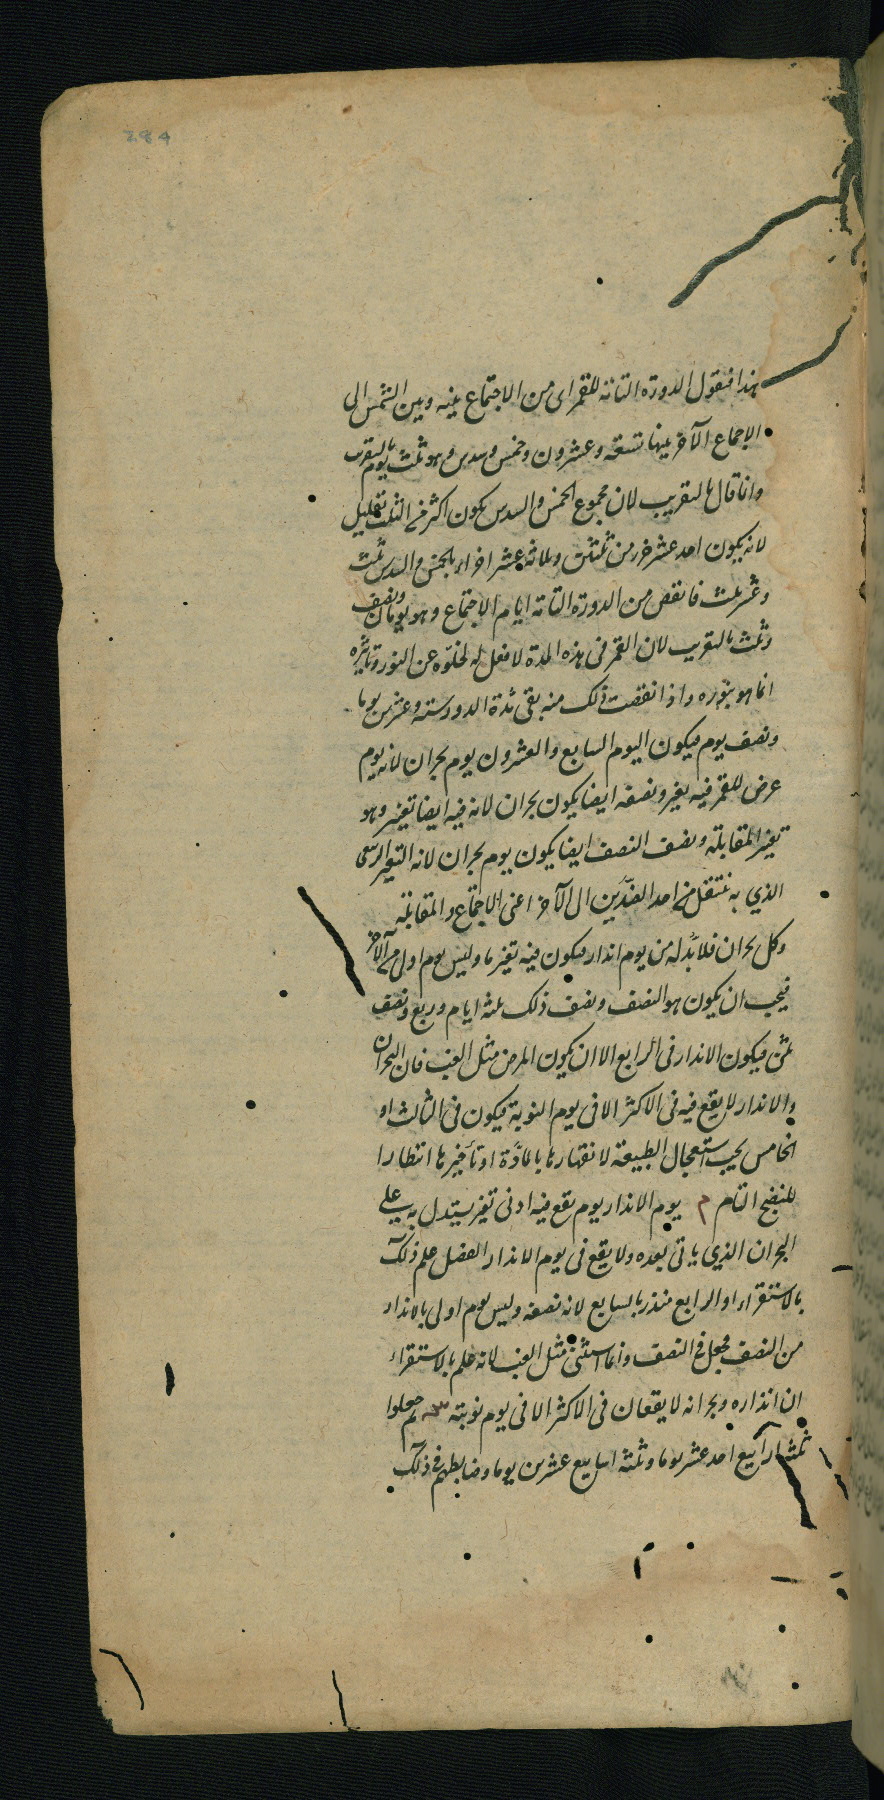 284
هذا فنقول الدورة التامة للقمر اى من الاجتماع بينه وبين الشمس الى
الاجتماع الآخر بينهما تسعة وعشرون وخمس وسدس وهو ثلث يوم بالتقريب
وانما قال بالتقريب لان مجموع الخمس والسدس يكون اكثر من الثلث بقليل
لانه يكون احد عشر جزء من ثلثين وثلاثة عشر اجزاء بالخمس والسدس ثلث
وعشر ثلث فانقص من الدورة التامة ايام الاجتماع وهو يومان ونصف
وثلث بالتقريب لان القمر فى هذه المدة لا فعل له لخلوه عن النور وتاثيره
انما هو بنوره واذا انقصت ذلك منه بقى مدة الدور ستة وعشرين يوما
ونصف يوم فيكون اليوم السابع والعشرون يوم بحران لانه يوم
عرض للقمر فيه تغير ونصفه ايضا يكون بحران لانه فيه ايضا تغير وهو
تغير المقابلة ونصف النصف ايضا يكون يوم بحران لانه التغير الربعى
الذي به ينتقل من احد الضدين الى الآخر اعنى الاجتماع والمقابلة
وكل بحران فلا بد له من يوم انذار فيكون فيه تغير ما وليس يوم اولى من الآخر
فيجب ان يكون هو النصف ونصف ذلك ثلثة ايام وربع ونصف
ثمن فيكون الانذار فى الرابع الا ان يكون المرض مثل الغب فان البحران
والانذار لا يقع فيه فى الاكثر الا فى يوم النوبة فيكون فى الثالث او
الخامس بحسب استعجال الطبيعة لانقهارها بالمادة او تأخيرها انتظارا
للنضج التام م يوم الانذار يوم يقع فيه ادنى تغير يستدل به على
البحران الذي ياتى بعده ولا يقع فى يوم الانذار الفصل علم ذلك
بالاستقراء او الرابع منذر بالسابع لانه نصفه وليس يوم اولى بالانذار
من النصف فجعل فى النصف وانما استثنى مثل الغب لانه علم بالاستقراء
ان انذاره وبحرانه لا يقعان فى الاكثر الا فى يوم نوبته ثم جعلوا
ثلثة ارابيع احد عشر يوما وثلثة اسابيع عشرين يوما وضابطهم فى ذلك